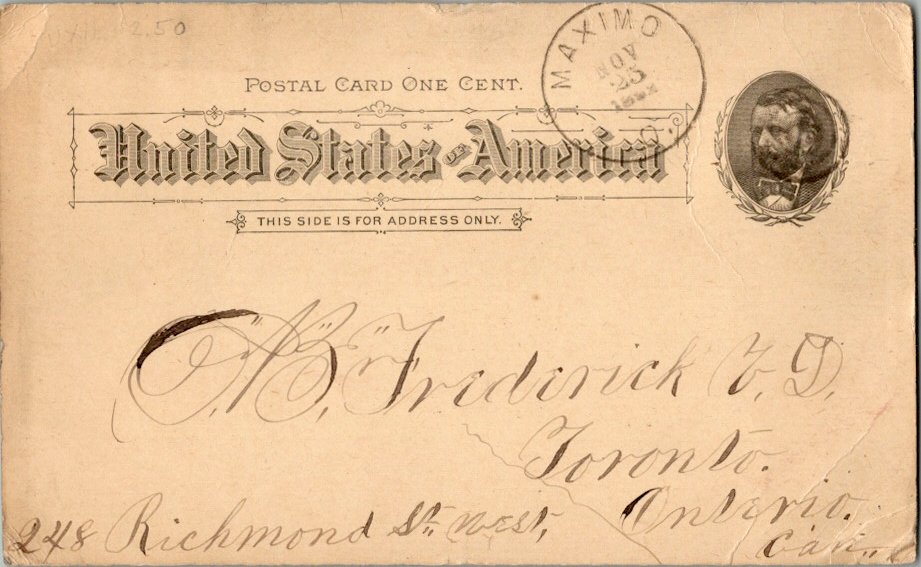 2.50
POSTAL CARD ONE CENT.
MAXIMO
NOV
25
O.
United States OF America
THIS SIDE IS FOR ADDRESS ONLY.
Frederick V. D.
Toronto.
Onterio.
248 Richmond St. West,
Can.